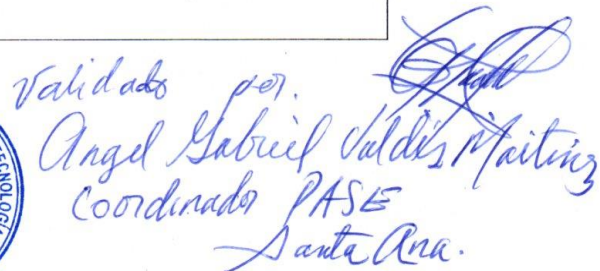 Validado por.
Angel Gabriel Valdés Martínez
Coordinador PASE
Santa Ana.
ECNOLOGÍA